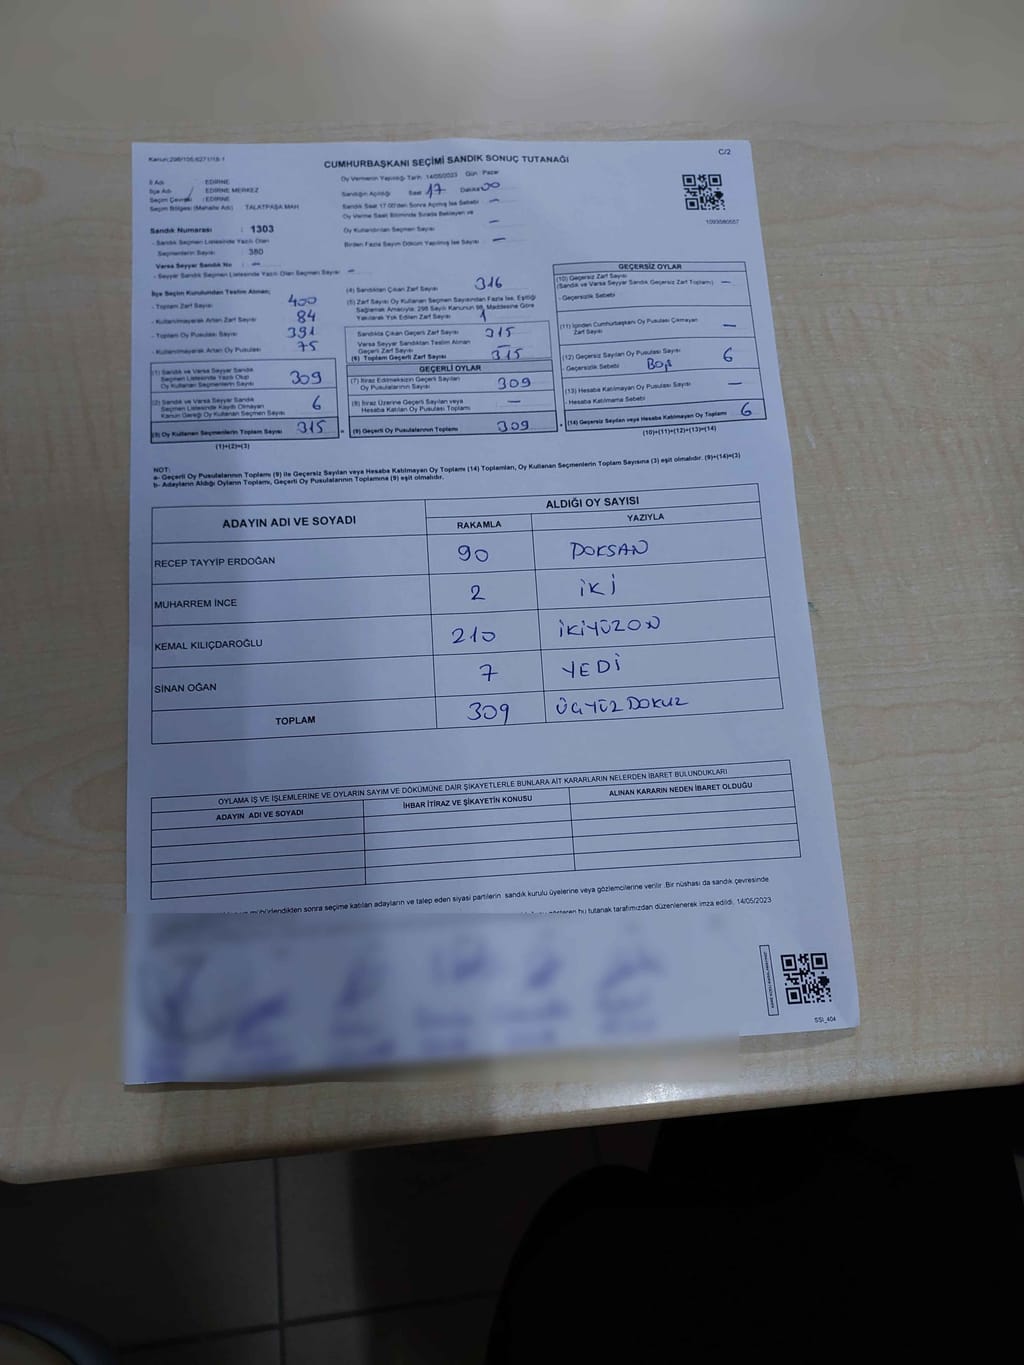 Kanun:298/105;6271/18-1
CUMHURBAŞKANI SEÇİMİ SANDIK SONUÇ TUTANAĞI
C/2
İl Adı : EDİRNE
İlçe Adı : EDİRNE MERKEZ
Seçim Çevresi : EDİRNE
Seçim Bölgesi (Mahalle Adı) TALATPAŞA MAH
Sandık Numarası : 1303
- Sandık Seçmen Listesinde Yazılı Olan
Seçmenlerin Sayısı : 380
Varsa Seyyar Sandık No : —
- Seyyar Sandık Seçmen Listesinde Yazılı Olan Seçmen Sayısı : —
Oy Vermenin Yapıldığı Tarih: 14/05/2023 Gün: Pazar
Sandığın Açıldığı Saat 17 Dakika 00
Sandık Saat 17:00'den Sonra Açılmış İse Sebebi —
Oy Verme Saati Bitiminde Sırada Bekleyen ve
Oy Kullandırılan Seçmen Sayısı —
Birden Fazla Sayım Döküm Yapılmış İse Sayısı —
1093580557
İlçe Seçim Kurulundan Teslim Alınan;
- Toplam Zarf Sayısı 400
- Kullanılmayarak Artan Zarf Sayısı 84
- Toplam Oy Pusulası Sayısı 391
- Kullanılmayarak Artan Oy Pusulası 75
(1) Sandık ve Varsa Seyyar Sandık
Seçmen Listesinde Yazılı Olup
Oy Kullanan Seçmenlerin Sayısı 309
(2) Sandık ve Varsa Seyyar Sandık
Seçmen Listesinde Kayıtlı Olmayan
Kanun Gereği Oy Kullanan Seçmen Sayısı 6
(3) Oy Kullanan Seçmenlerin Toplam Sayısı 315
(1)+(2)=(3)
(4) Sandıktan Çıkan Zarf Sayısı 316
(5) Zarf Sayısı Oy Kullanan Seçmen Sayısından Fazla İse, Eşitliği
Sağlamak Amacıyla; 298 Sayılı Kanunun 98. Maddesine Göre
Yakılarak Yok Edilen Zarf Sayısı 1
Sandıkta Çıkan Geçerli Zarf Sayısı 315
Varsa Seyyar Sandıktan Teslim Alınan
Geçerli Zarf Sayısı —
(6) Toplam Geçerli Zarf Sayısı 315
GEÇERLİ OYLAR
(7) İtiraz Edilmeksizin Geçerli Sayılan
Oy Pusulalarının Sayısı 309
(8) İtiraz Üzerine Geçerli Sayılan veya
Hesaba Katılan Oy Pusulası Toplamı —
(9) Geçerli Oy Pusulalarının Toplamı 309
GEÇERSİZ OYLAR
(10) Geçersiz Zarf Sayısı
(Sandık ve Varsa Seyyar Sandık Geçersiz Zarf Toplamı) —
- Geçersizlik Sebebi
(11) İçinden Cumhurbaşkanı Oy Pusulası Çıkmayan
Zarf Sayısı —
(12) Geçersiz Sayılan Oy Pusulası Sayısı 6
- Geçersizlik Sebebi Boş
(13) Hesaba Katılmayan Oy Pusulası Sayısı —
- Hesaba Katılmama Sebebi
(14) Geçersiz Sayılan veya Hesaba Katılmayan Oy Toplamı 6
(10)+(11)+(12)+(13)=(14)
NOT:
a- Geçerli Oy Pusulalarının Toplamı (9) ile Geçersiz Sayılan veya Hesaba Katılmayan Oy Toplamı (14) Toplamları, Oy Kullanan Seçmenlerin Toplam Sayısına (3) eşit olmalıdır. (9)+(14)=(3)
b- Adayların Aldığı Oyların Toplamı, Geçerli Oy Pusulalarının Toplamına (9) eşit olmalıdır.
ADAYIN ADI VE SOYADI
ALDIĞI OY SAYISI
RAKAMLA YAZIYLA
RECEP TAYYİP ERDOĞAN 90 DOKSAN
MUHARREM İNCE 2 İKİ
KEMAL KILIÇDAROĞLU 210 İKİYÜZON
SİNAN OĞAN 7 YEDİ
TOPLAM 309 ÜÇYÜZ DOKUZ
OYLAMA İŞ VE İŞLEMLERİNE VE OYLARIN SAYIM VE DÖKÜMÜNE DAİR ŞİKAYETLERLE BUNLARA AİT KARARLARIN NELERDEN İBARET BULUNDUKLARI
ADAYIN ADI VE SOYADI İHBAR İTİRAZ VE ŞİKAYETİN KONUSU ALINAN KARARIN NEDEN İBARET OLDUĞU
mühürlendikten sonra seçime katılan adayların ve talep eden siyasi partilerin sandık kurulu üyelerine veya gözlemcilerine verilir. Bir nüshası da sandık çevresinde
gösteren bu tutanak tarafımızdan düzenlenerek imza edildi. 14/05/2023
SSI_404